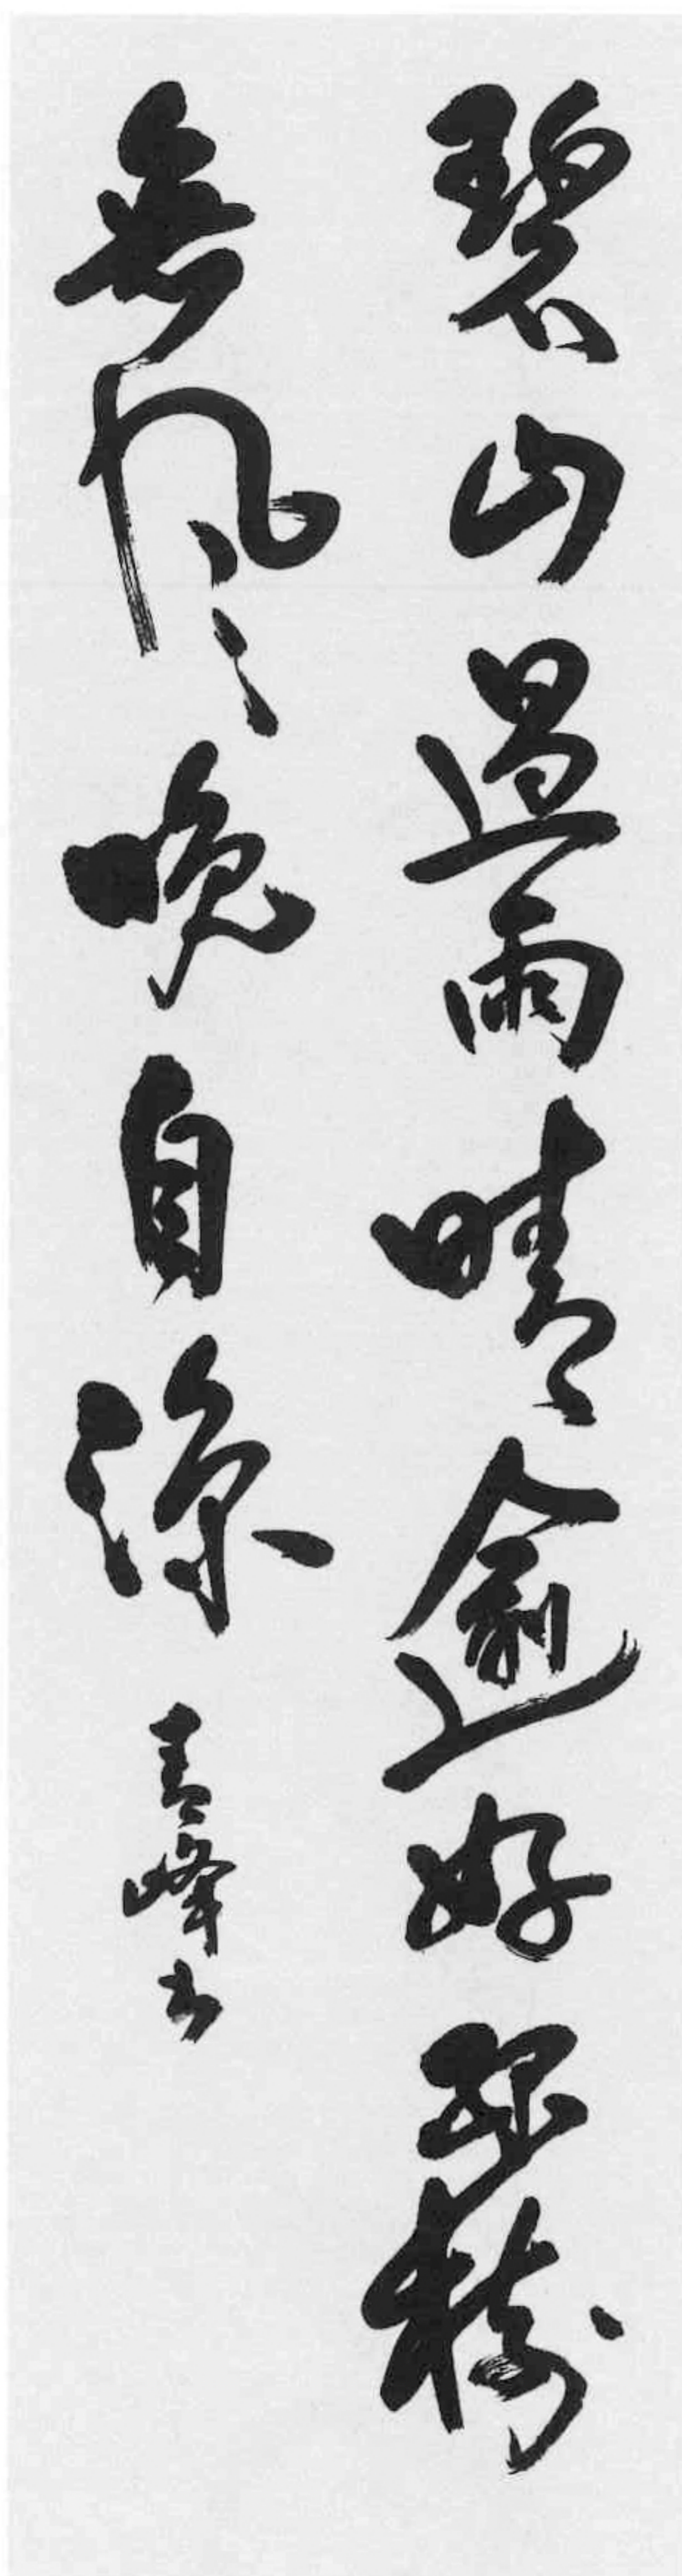 碧山過雨晴逾好綠樹
無風晚自涼 青峰書